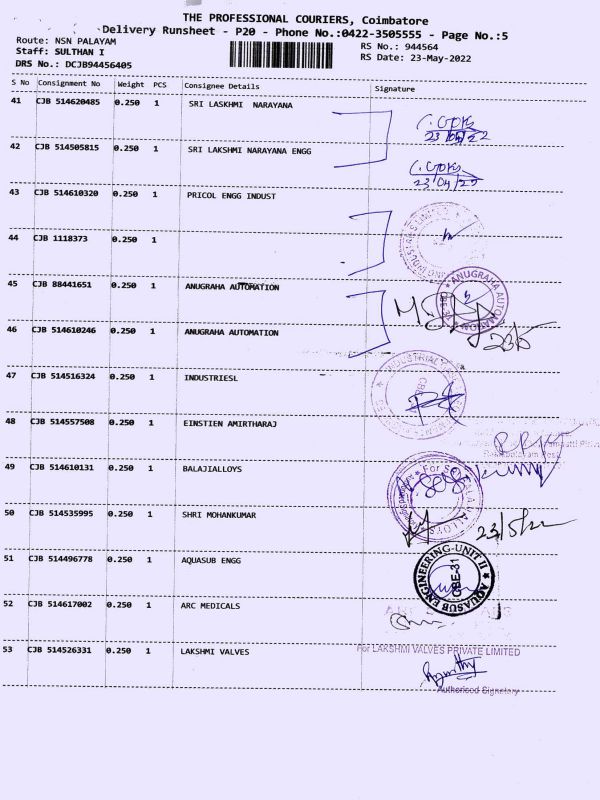 THE PROFESSIONAL COURIERS, Coimbatore
Delivery Runsheet - P20 - Phone No.:0422-3505555 - Page No.:5
Route: NSN PALAYAM
Staff: SULTHAN I
DRS No.: DCJB94456405
RS No.: 944564
RS Date: 23-May-2022
S No Consignment No Weight PCS Consignee Details Signature
41 CJB 514620485 0.250 1 SRI LASKHMI NARAYANA
23/05/22
42 CJB 514505815 0.250 1 SRI LAKSHMI NARAYANA ENGG
43 CJB 514610320 0.250 1 PRICOL ENGG INDUST
44 CJB 1118373 0.250 1
45 CJB 88441651 0.250 1 ANUGRAHA AUTOMATION
ANUGRAHA AUTOMATION
46 CJB 514610246 0.250 1 ANUGRAHA AUTOMATION
47 CJB 514516324 0.250 1 INDUSTRIESL
48 CJB 514557508 0.250 1 EINSTIEN AMIRTHARAJ
49 CJB 514610131 0.250 1 BALAJIALLOYS
50 CJB 514535995 0.250 1 SHRI MOHANKUMAR
23/5/22
51 CJB 514496778 0.250 1 AQUASUB ENGG
AQUASUB ENGINEERING-UNIT II
CBE-31
52 CJB 514617002 0.250 1 ARC MEDICALS
53 CJB 514526331 0.250 1 LAKSHMI VALVES
For LAKSHMI VALVES PRIVATE LIMITED
Authorised Signatory